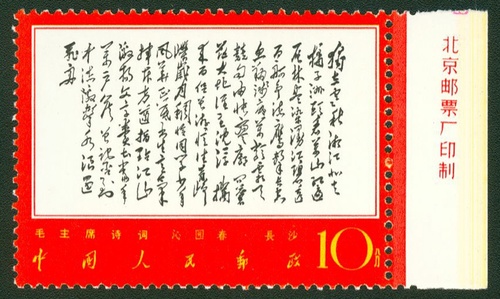 独立寒秋湘江北去
橘子洲头看万山红遍
层林尽染漫江碧透
百舸争流鹰击长空
鱼翔浅底万类霜天
竞自由怅寥廓问
苍茫大地谁主沉浮携
来百侣曾游忆往昔峥
嵘岁月稠恰同学少年
风华正茂书生意气
挥斥方遒指点江山
激扬文字粪土当年
万户侯曾记否到
中流击水浪遏
飞舟
毛主席诗词 沁园春·长沙
中国人民邮政 10分
北京邮票厂印制